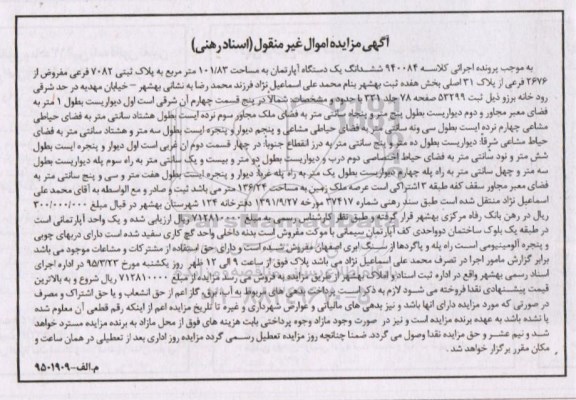 آگهی مزایده اموال غیر منقول (اسناد رهنی)
به موجب پرونده اجرائی کلاسه ۹۴۰۰۸۴ ششدانگ یک دستگاه آپارتمان به مساحت ۱۰۱/۸۳ متر مربع به پلاک ثبتی ۷۰۸۲ فرعی مفروض از
۲۶۷۶ فرعی از پلاک ۳۱ اصلی بخش هفده ثبت بهشهر بنام محمد علی اسماعیل نژاد فرزند محمد رضا به نشانی بهشهر – خیابان مهدیه در حد شرقی
رود خانه برزو ذیل ثبت ۵۳۲۹۹ صفحه ۷۸ جلد حدود و مشخصات شمالا در پنج قسمت چهارم آن شرقی است اول دیواریست بطول ۱ متر به
فضای معبر مجاور و دوم دیواریست بطول پنجاه سانتی متر به فضای ملک مجاور سوم نرده ایست بطول هشتاد سانتی متر به فضای حیاطی
مشاعی چهارم نرده ایست بطول سی و نه سانتی حیاطی مشاعی و پنجم دیوار و پنجره ایست بطول سه متر و هشتاد سانتی متر به فضای
حیاط مشاعی شرقاً: دیواریست بطول ده متر و پنج سانتی متر به درز انقطاع جنوباً: در چهار قسمت دوم آن غربی است اول دیوار و پنجره ایست بطول
شش متر و نود سانتی متر به فضای حیاط اختصاصی دوم درب و دیواریست بطول دو متر و بیست و یک سانتی متر به راه سوم پله دیواریست بطول
سه متر و چهل سانتی متر به راه پله چهارم دیواریست بطول یک متر به راه پله غرباً: دیوار و پنجره ایست بطول هفت متر و سی و پنج سانتی متر به
فضای معبر مجاور سقف کفه طبقه ۳ اشتراکی است عرصه ملک زمین به مساحت ۱۳۶/۲۴ متر می باشد ثبت و صادر و مع الواسطه به آقای محمد علی
اسماعیل نژاد منتقل شده است طبق سند رهنی شماره ۳۷۴۱۷ مورخه ۱۳۹۱/۹/۲۷ دفترخانه ۱۲۴ شهرستان بهشهر در قبال مبلغ ۳۰۰/۰۰۰/۰۰۰
ریال در رهن بانک رفاه مرکزی بهشهر قرار گرفته و طبق نظر کارشناس رسمی به مبلغ ۷۱۲۸۱۰۰۰۰ ریال ارزیابی شده و یک واحد آپارتمانی است
در طبقه یک بلوک ساختمان دوواحدی کف آپارتمان سیمانی با موکت مفروش است بدنه داخلی واحد گچ کاری سفید شده است دارای دربهای چوبی
و پنجره آلومینیومی است راه پله و پاگردها از سنگ ابری اصفهان مفروش شده است و دارای حق استفاده از مشترکات و مشاعات موجود می باشد
برابر گزارش مامور اجرا در تصرف محمد علی اسماعیل نژاد می باشد پلاک فوق از ساعت ۹ الی ۱۲ ظهر روز یکشنبه مورخ ۹۵/۳/۲۳ در اداره اجرای
اسناد رسمی بهشهر واقع در اداره ثبت اسناد و املاک بهشهر از طریق مزایده به فروش می رسد مزایده از مبلغ ۷۱۲۸۱۰۰۰۰ ریال شروع و به بالاترین
قیمت پیشنهادی نقدا فروخته می شود لازم به ذکر است پرداخت بدهی های مربوط به آب، برق، گاز اعم از حق انشعاب و یا حق اشتراک و مصرف
در صورتی که مورد مزایده دارای آنها باشد و نیز بدهی های مالیاتی و عوارض شهرداری و غیره تا تاریخ مزایده اعم از اینکه رقم قطعی آن معلوم شده
یا نشده باشد به عهده برنده مزایده است و نیز در صورت وجود مازاد وجوه پرداختی بابت هزینه های فوق از محل مازاد به برنده مزایده مسترد خواهد
شد و نیم عشر و حق مزایده نقدا وصول می گردد. ضمنا چنانچه روز مزایده تعطیل رسمی گردد مزایده روز اداری بعد از تعطیلی در همان ساعت و
مکان مقرر برگزار خواهد شد.
م.الف-۹۵۰۱۹۰۹